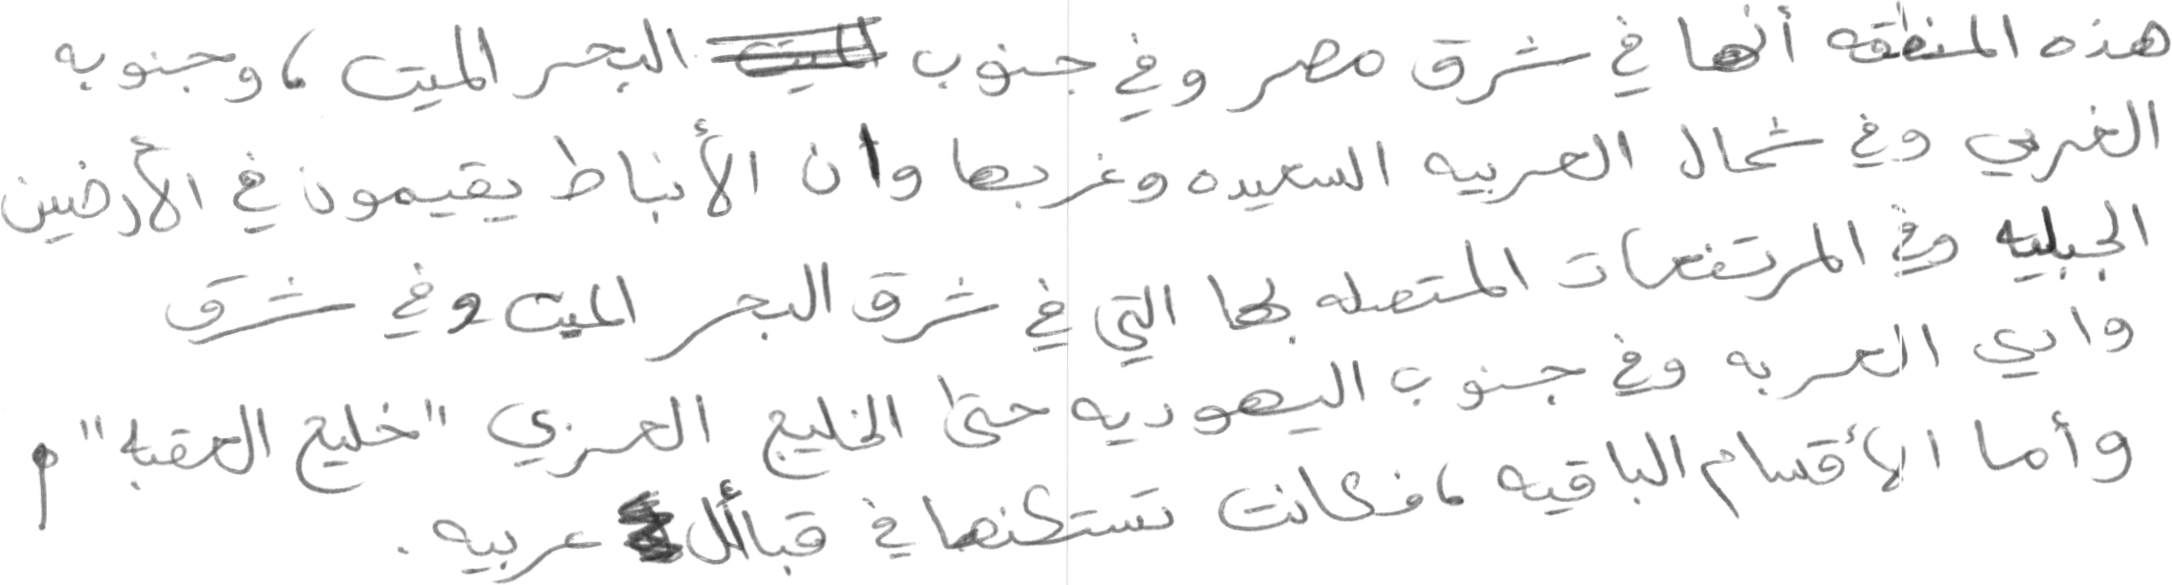 هذه المنطقه أنها في شرق مصر وفي جنوب البحر الميت، وجنوبه
الغربي وفي شمال العربيه السعيده وغربها وان الأنباط يقيمون في الأرضين
الجبليه وفي المرتفعات المتصله بها التي في شرق البحر الميت وفي شرق
وادي العربه وفي جنوب اليهوديه حتى الخليج العربي "خليج العقبه" م
وأما الأقسام الباقيه، فكانت تستكنها في قبائل عربيه.